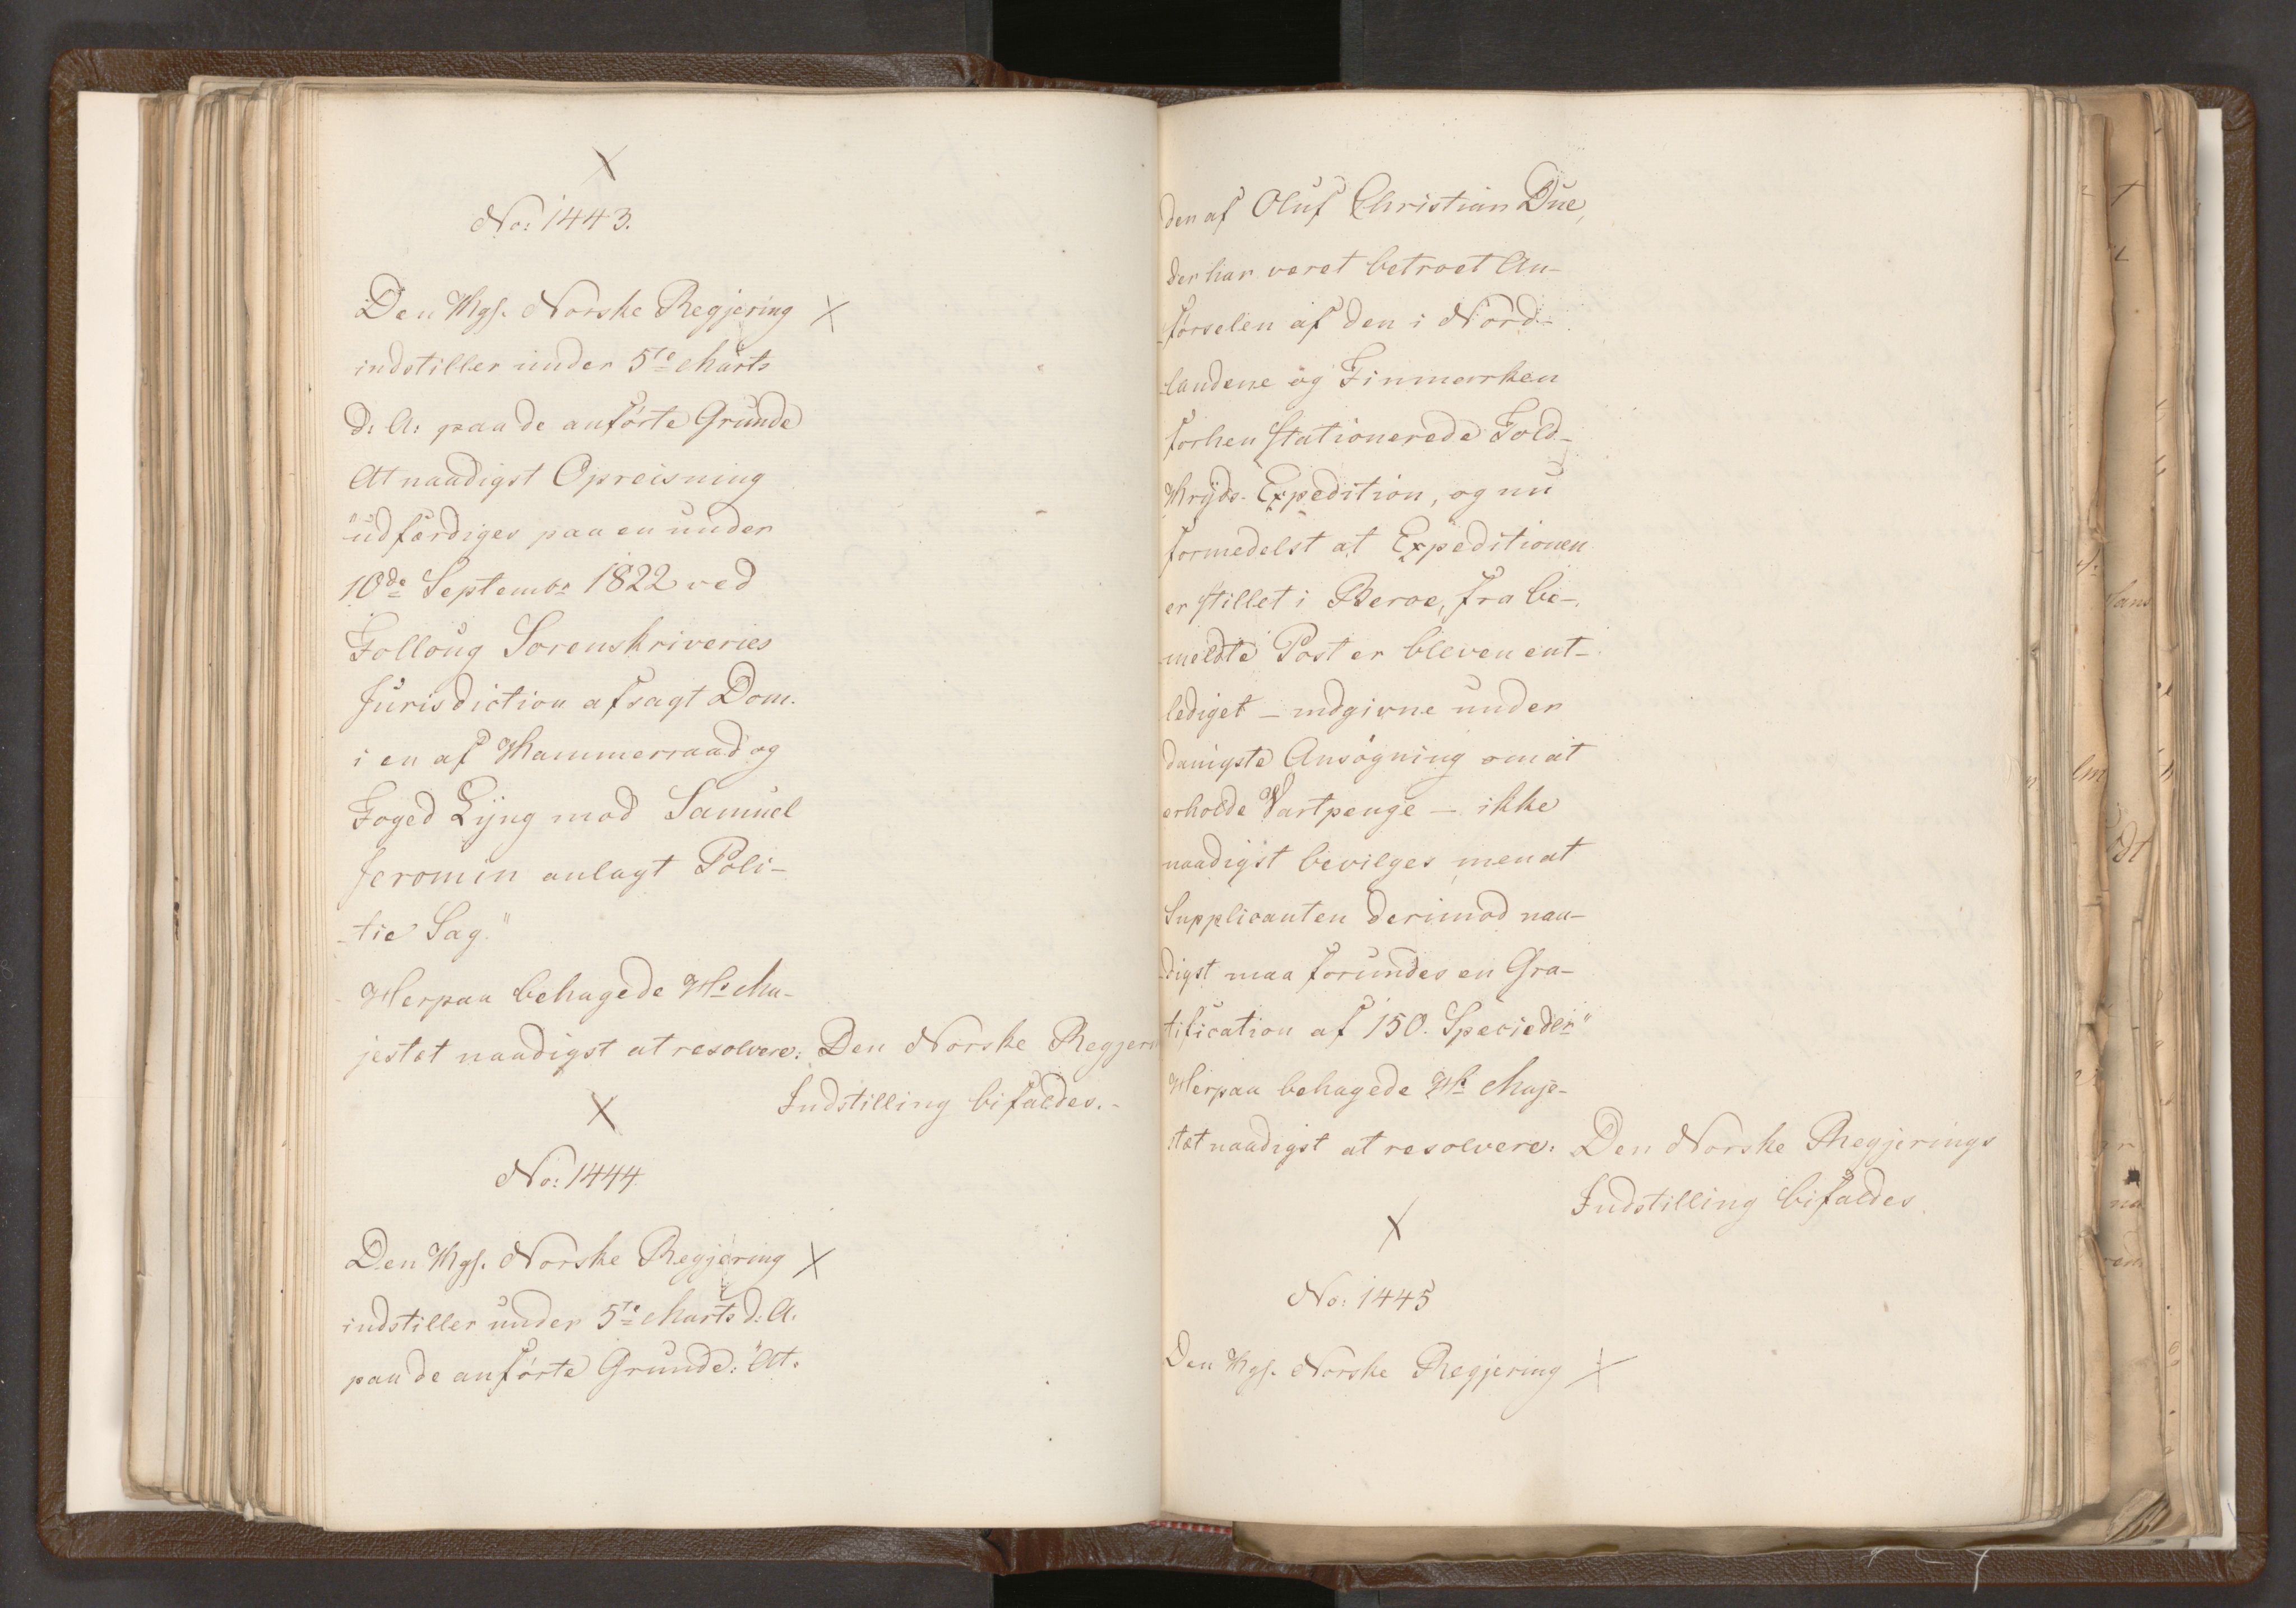 No: 1443.
Den Kgs. Norske Regjering
indstiller under 5te Marts
d: A: paa de anførte Grunde
At naadigst Opreisning
"udfærdiges paa en under
10de Septembr 1822 ved
Følloug Sorenskriveries
Jurisdiction afsagt Dom.
i en af Kammerraad og
Foged Lyng mod Samuel
Jeromin anlagt Poli-
-tie Sag."
Herpaa behagede Hs Ma-
jestæt naadigst at resolvere: Den Norske Regjeri
Indstilling bifaldes.-
No: 1444.
Den Kgs. Norske Regjering
indstiller under 5te Marts d: A.
paa de anførte Grunde: "At.
den af Oluf Christian Due,
der har været betroet An-
-førselen af den i Nord-
-landene og Finmarken
forhen stationerede Told-
Kryds-Expedition, og nu
formedelst at Expeditionen
er stillet i Beroe, fra be-
-meldte Post er bleven ent-
lediget – indgivne under
danigste Ansøgning om at
erholde Vartpenge – ikke
naadigst bevilges, men at
Supplicanten derimod naa-
digst maa forundes en Gra-
tification af 150. Specieder"
Herpaa behagede Hs Maje-
stæt naadigst at resolvere: Den Norske Regjerings
Indstilling bifaldes.
No: 1445
Den Kgs. Norske Regjering